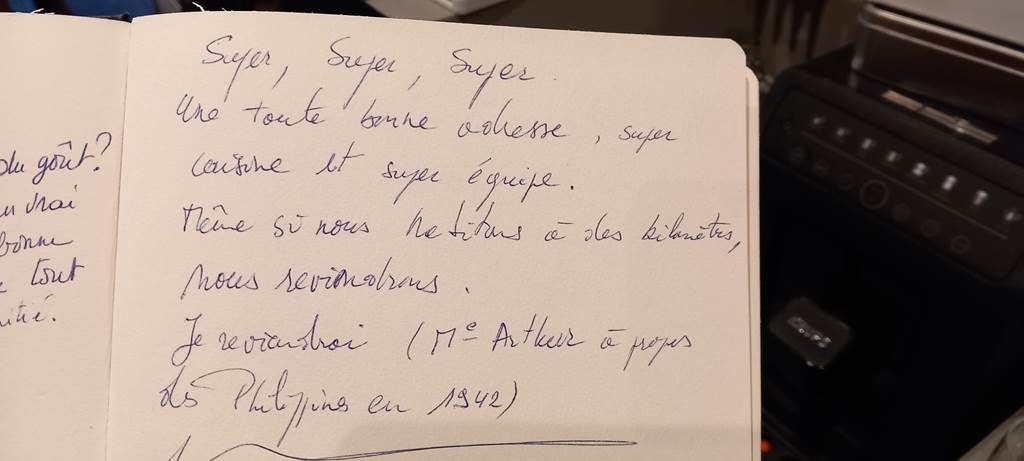 du goût?
un vrai
bonne
tout
Super, Super, Super.
Une toute bonne adresse, super
cuisine et super équipe.
Même si nous habitons à des kilomètres,
nous reviendrons.
Je reviendrai (Mc Arthur à propos
des Philippines en 1942)